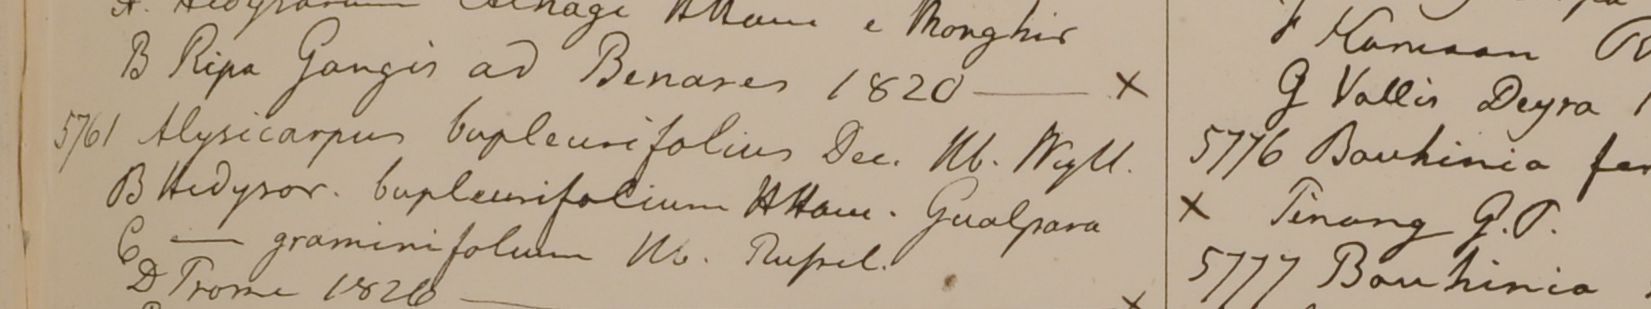 A. Hedysarum HHam e Monghir
B Ripa Gangis ad Benares 1820 — ×
5761 Alysicarpus bupleurifolius Dec. Hb. Wight.
B Hedysar. bupleurifolium HHam. Gualpara
C — graminifolium Hb. Russel.
D Prome 1826 — ×
F Kamaon
G Vallis Deyra
5776 Bauhinia
× Pinang G.P.
5777 Bauhinia